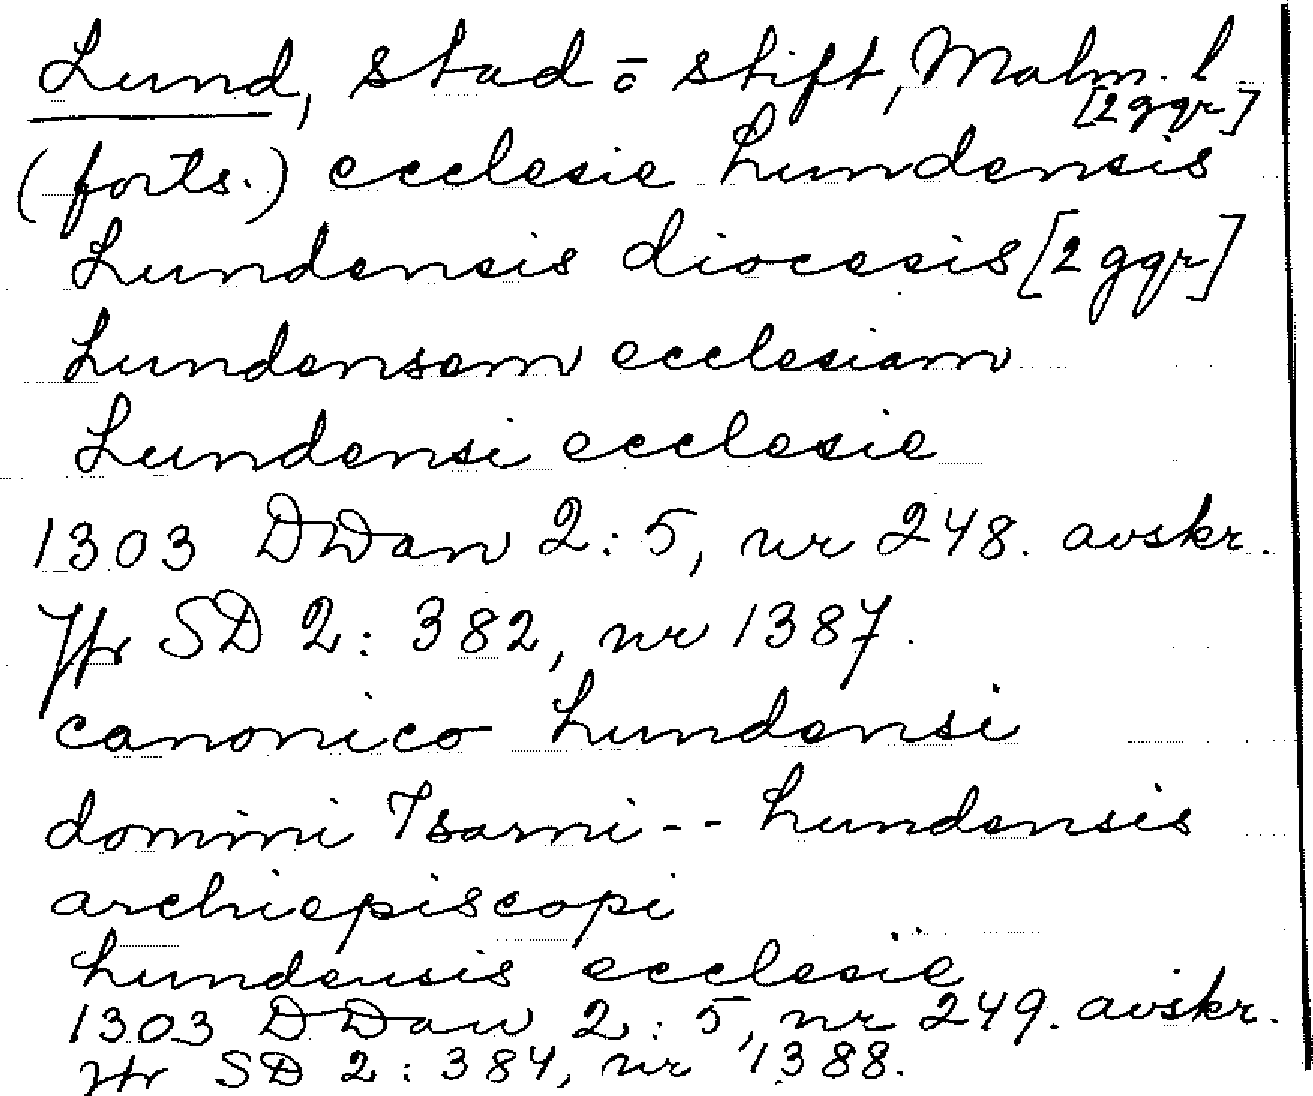 Lund, stad o stift, Malm. l
[2 ggr]
(forts.) ecclesie Lundensis
Lundensis diocesis [2 ggr]
Lundensem ecclesiam
Lundensi ecclesie
1303 DDan 2:5, nr 248. avskr.
Jfr SD 2: 382, nr 1387.
canonico Lundensi
domini Isarni -- Lundensis
archiepiscopi
Lundensis ecclesie
1303 DDan 2:5, nr 249. avskr.
Jfr SD 2: 384, nr 1388.